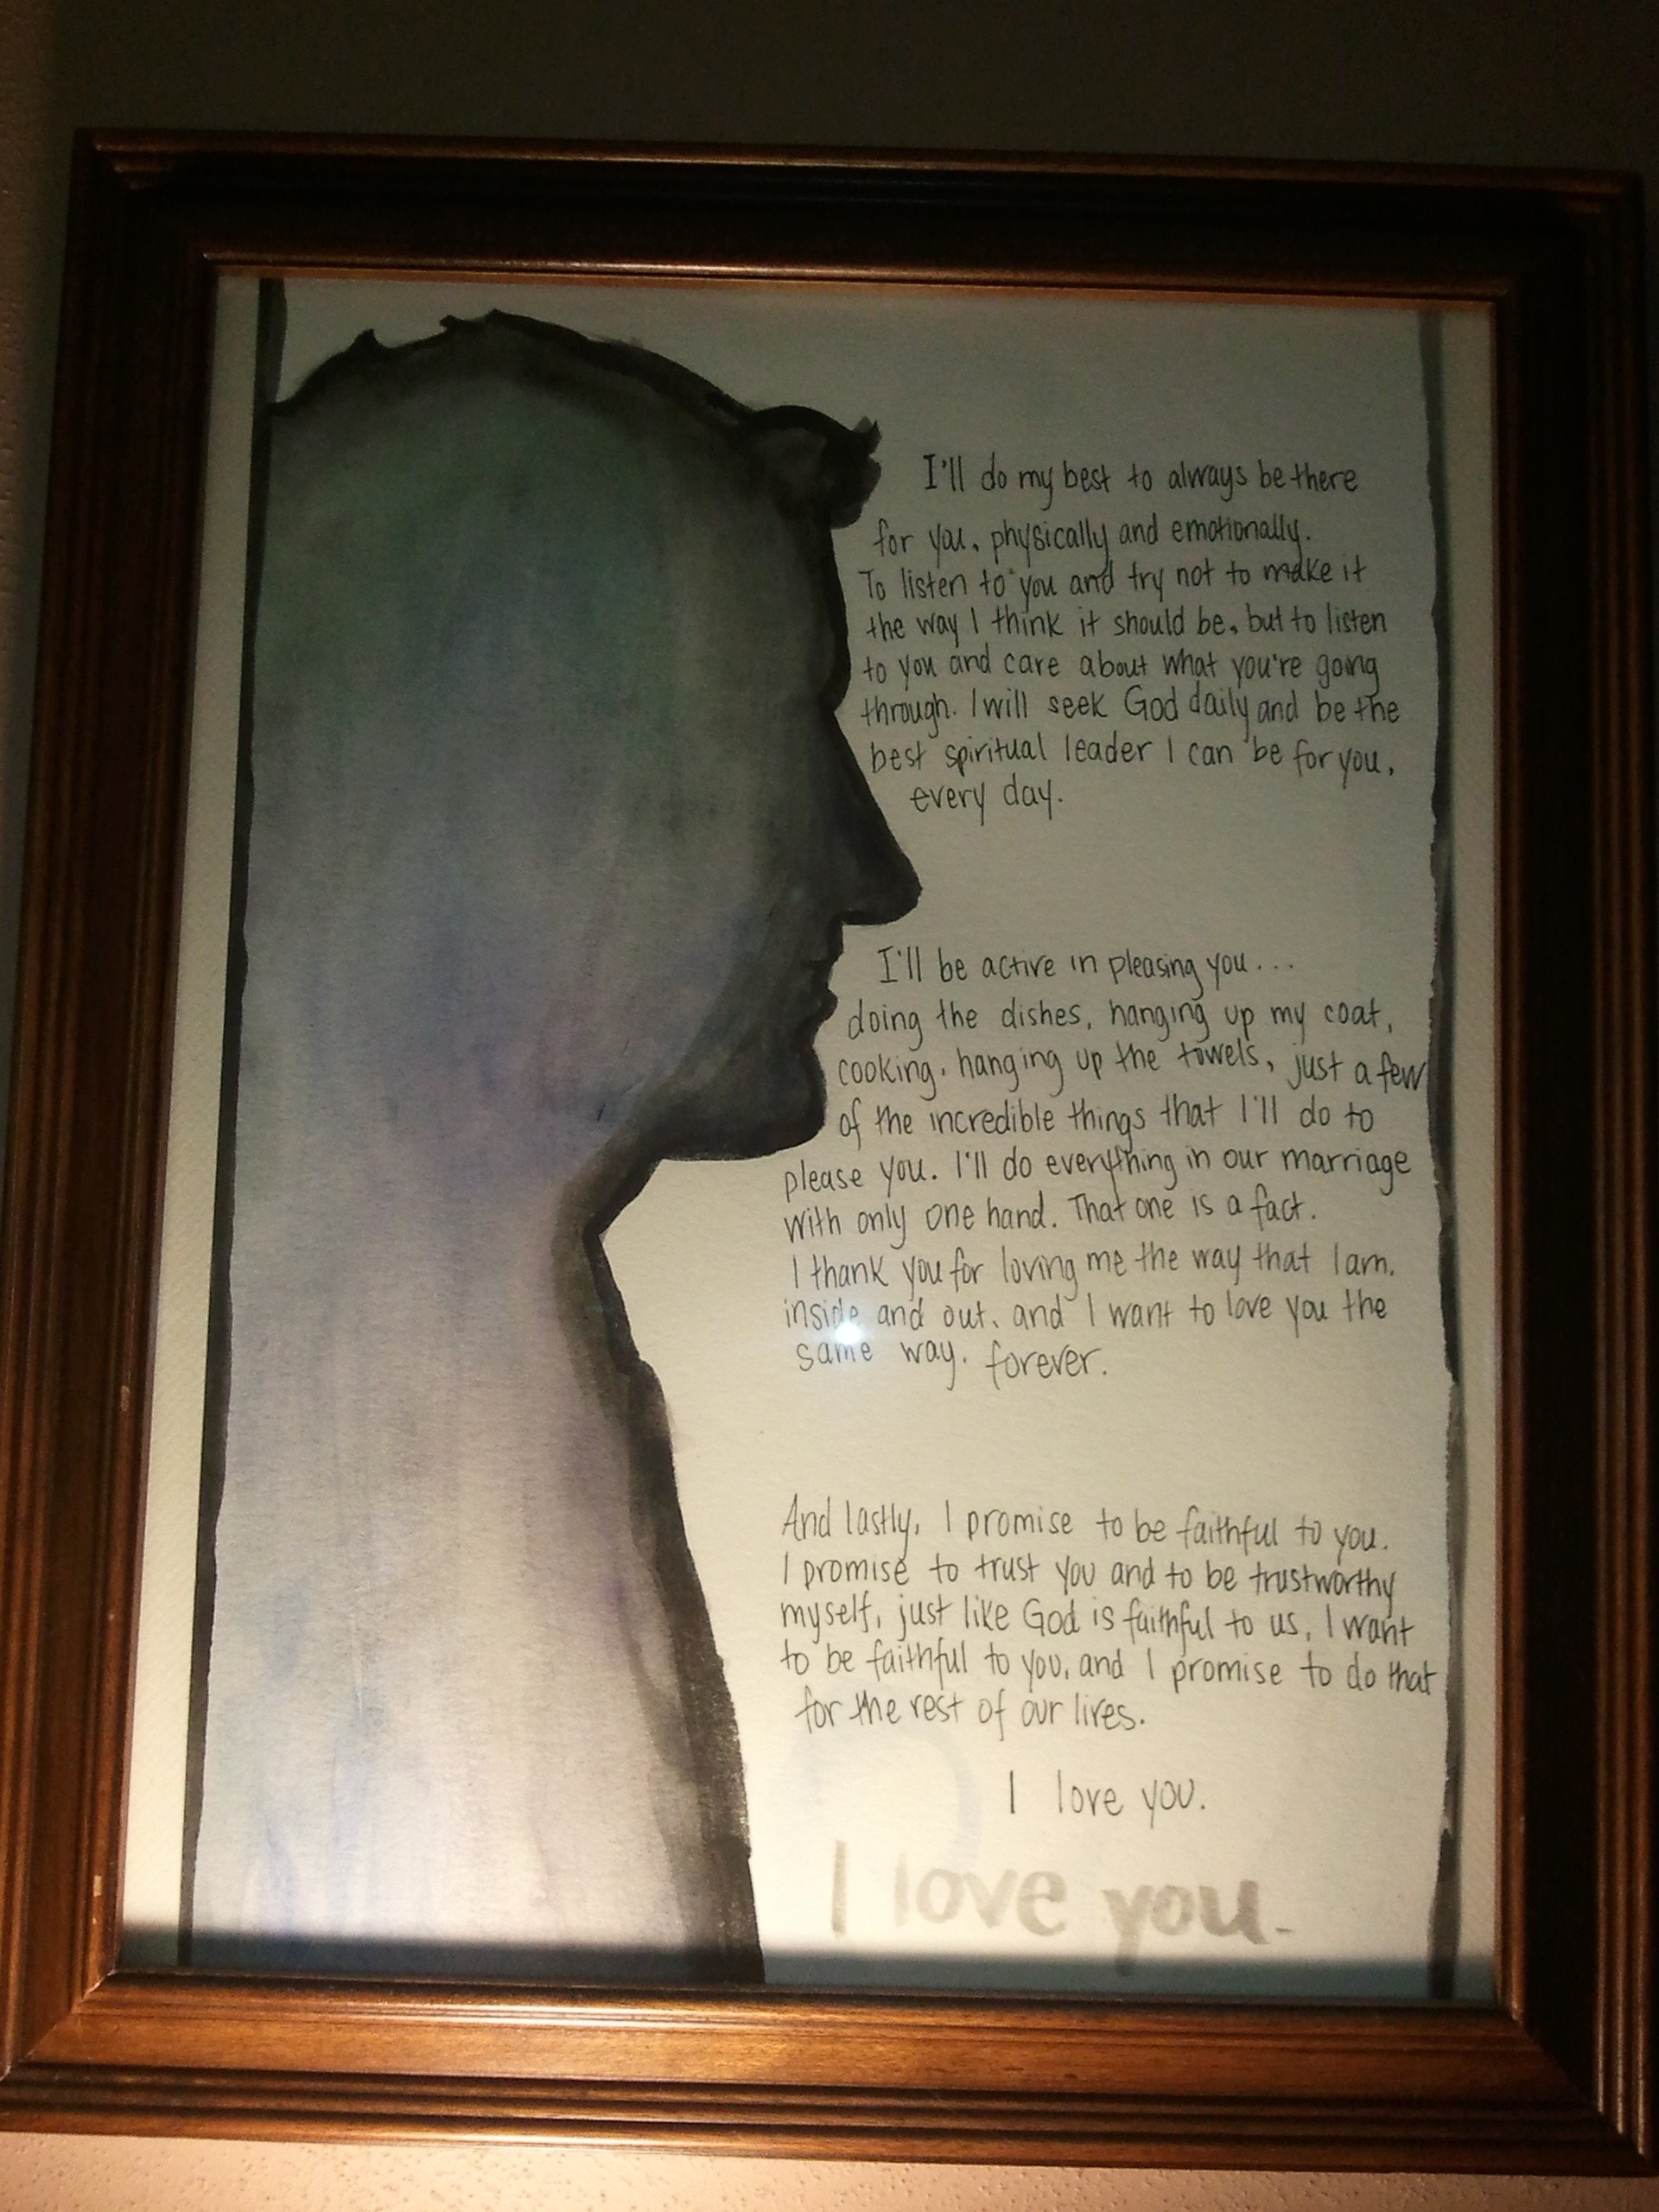 I'll do my best to always be there
for you, physically and emotionally.
To listen to you and try not to make it
the way I think it should be, but to listen
to you and care about what you're going
through. I will seek God daily and be the
best spiritual leader I can be for you,
every day.
I'll be active in pleasing you...
doing the dishes, hanging up my coat,
cooking, hanging up the towels, just a few
of the incredible things that I'll do to
please you. I'll do everything in our marriage
with only one hand. That one is a fact.
I thank you for loving me the way that I am,
inside and out, and I want to love you the
same way, forever.
And lastly, I promise to be faithful to you.
I promise to trust you and to be trustworthy
myself, just like God is faithful to us, I want
to be faithful to you, and I promise to do that
for the rest of our lives.
I love you.
I love you.